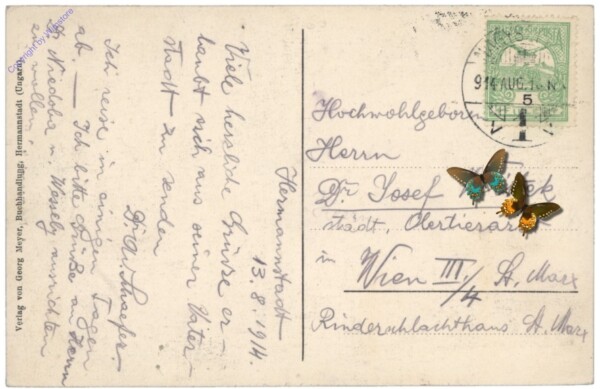 Hermannstadt
13.8.1914.
Viele herzliche Grüsse er-
laubt sich aus seiner Vater-
stadt zu senden
Dr. W. Schaefer.
Ich reise in einigen Tagen
ab. — Ich bitte Grüße an Herrn
Dr. Niedoba u. Wessely ausrichten
zu wollen.
Hochwohlgeboren
Herrn
Dr. Josef
städt. Obertierarzt
in
Wien III./4 St. Marx
Rinderschlachthaus St. Marx
914 AUG. 1
5
Verlag von Georg Meyer, Buchhandlung, Hermannstadt (Ungarn)
Copyright by